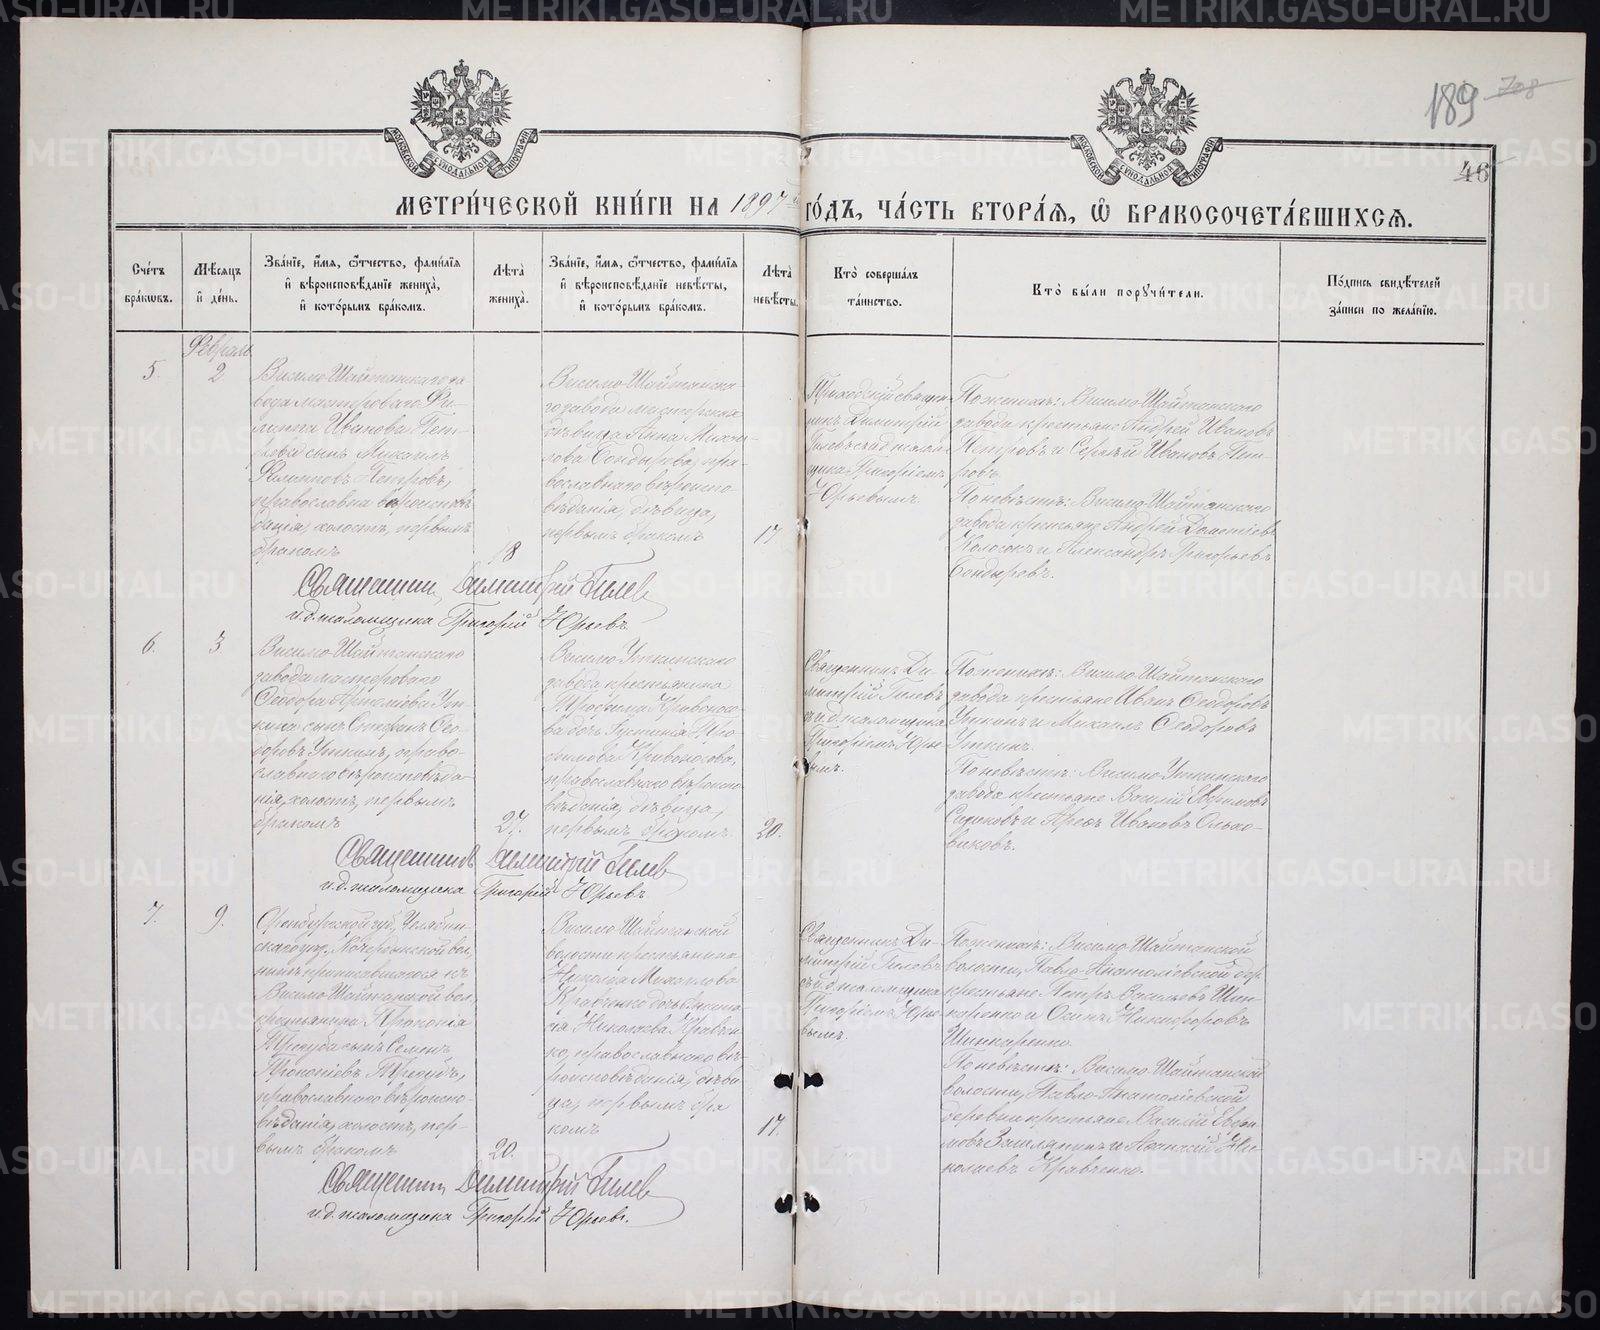 189 708
46
МОСКОВСКОЙ СѴНОДАЛЬНОЙ ТИПОГРАФІИ
МОСКОВСКОЙ СѴНОДАЛЬНОЙ ТИПОГРАФІИ
МЕТРИ́ЧЕСКОЙ КНИ́ГИ НА 1897 й ГО́ДЪ, ЧА́СТЬ ВТОРА́Я, Ѽ БРАКОСОЧЕТА́ВШИХСЯ.
Сче́тъ
бра́ковъ.
Мѣ́сяцъ
и҆ де́нь.
Зва́нїе, и҆́мя, ѻ҆́тчество, фами́лїя
и҆ вѣроисповѣ́данїе жениха̀,
и҆ кото́рымъ бра́комъ.
Лѣ́та
жениха̀.
Зва́нїе, и҆́мя, ѻ҆́тчество, фами́лїя
и҆ вѣроисповѣ́данїе невѣ́сты,
и҆ кото́рымъ бра́комъ.
Лѣ́та
невѣ́сты.
Кто̀ соверша́лъ
та́инство.
Кто̀ бы́ли поручи́тели.
По́дпись свидѣ́телей
за́писи по жела́нїю.
Февраль
5.
2
Висимо-Шайтанскаго за
вода мастероваго Фи-
липпа Иванова Пет-
рова сынъ Михаилъ
Филипповъ Петровъ,
православна вѣроисповѣ
данія, холостъ, первымъ
бракомъ
18
Висимо-Шайтанска-
го завода мастерская
дѣвица Анна Михаи-
лова Бондырева, пра-
вославнаго вѣроиспо-
вѣданія, дѣвица,
первымъ бракомъ
17
Приходскій священ-
никъ Димитрій
Гилевъ съ и.д. псалом-
щика Григоріемъ
Юрьевымъ
По женихѣ: Висимо-Шайтанскаго
завода крестьяне Андрей Ивановъ
Петровъ и Сергѣй Ивановъ Пет-
ровъ.
По невѣстѣ: Висимо-Шайтанскаго
завода крестьяне Андрей Дометіевъ
Колосокъ и Александръ Григорьевъ
Бондыревъ.
Священник Димитрій Гилев
и.д. псаломщика Григорій Юрьевъ
6.
3
Висимо-Шайтанскаго
завода мастероваго
Ѳеодора Артеміева Ут-
кина сынъ Стефанъ Ѳео-
доровъ Уткинъ, право-
славнаго вѣроисповѣда-
нія, холостъ, первымъ
бракомъ
27.
Висимо-Уткинскаго
завода крестьянина
Трофима Кривоносо-
ва дочь Іустинія Тро-
фимова Кривоносова,
православнаго вѣроиспо-
вѣданія, дѣвица,
первымъ бракомъ.
20.
Священникъ Ди-
митрій Гилевъ
съ и.д. псаломщика
Григоріемъ Юрье-
вымъ.
По женихѣ: Висимо-Шайтанскаго
завода крестьяне Иванъ Ѳеодоровъ
Уткинъ и Михаилъ Ѳеодоровъ
Уткинъ.
По невѣстѣ: Висимо-Уткинскаго
завода крестьяне Василій Евфимовъ
и Ивановъ Ольхо-
виковъ.
Священник Димитрій Гилев
и.д. псаломщика Григорій Юрьевъ.
7.
9.
Оренбургской губ, Челябин-
скаго уѣз., вол,
нынѣ приписавшагося къ
Висимо-Шайтанской вол,
крестьянина Прокопія
Трегуба сынъ Семенъ
Прокопіевъ Трегубъ,
православнаго вѣроиспо-
вѣданія, холостъ, пер-
вымъ бракомъ
20.
Висимо-Шайтанской
волости крестьянина
Николая Михайлова
Кравченко дочь
Николаева Кравчен-
ко, православнаго вѣ-
роисповѣданія, дѣви-
ца, первымъ бра
комъ
17.
Священникъ Ди-
митрій Гилевъ
съ и.д. псаломщика
Григоріемъ Юрье-
вымъ.
По женихѣ: Висимо-Шайтанской
волости, Павло-Анатоліевской дер.
крестьяне Петръ Васильевъ Шин-
каренко и Осипъ Никифоровъ
Шинкаренко.
По невѣстѣ: Висимо-Шайтанской
волости, Павло-Анатоліевской
деревни крестьяне Василій Евфи-
мовъ и Аѳанасій Ни-
колаевъ Кравченко.
Священник Димитрій Гилев
и.д. псаломщика Григорій Юрьевъ.
METRIKI.GASO-URAL.RU